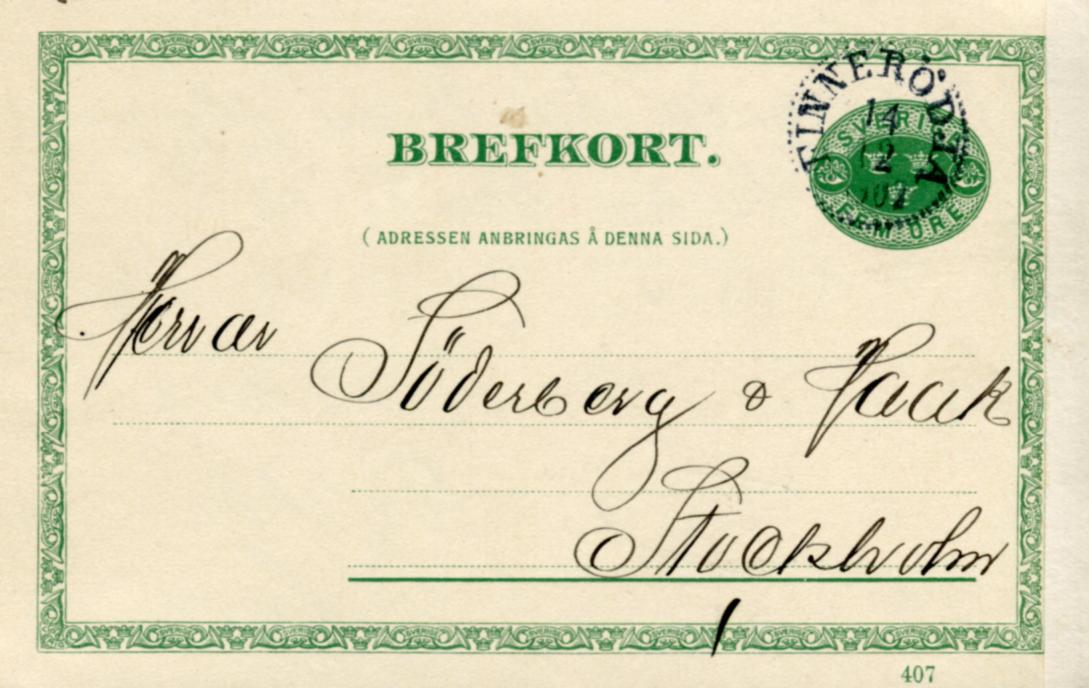 FINNERÖDJA
14
12
SVERIGE
FEM ÖRE
BREFKORT.
(ADRESSEN ANBRINGAS Å DENNA SIDA.)
Herrar
Söderberg & Haak
Stockholm
1
407